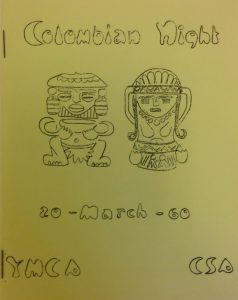 Colombian Night
20-March-60
YMCA CSA